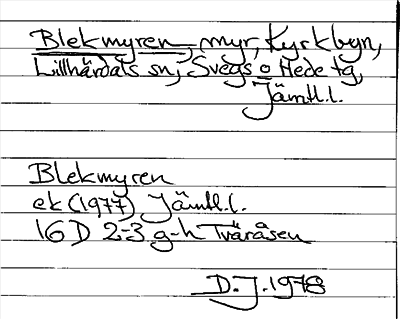 Blekmyren, myr, Kyrkbyn,
Lillhärdals sn, Svegs o Hede tg,
Jämtl.l.
Blekmyren
ek (1977) Jämtl.l.
16 D 2-3 g-h Tväråsen
D.J. 1978